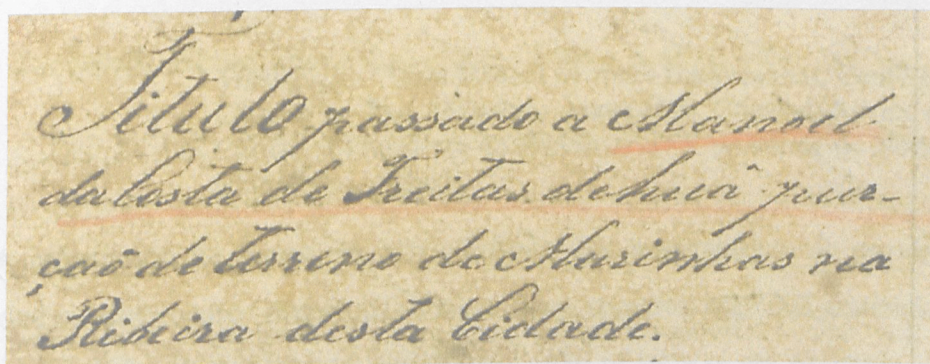 Titulo passado a Manoel
da Costa de Freitas de huã pur-
ção de terreno de Marinhas na
Ribeira desta Cidade.